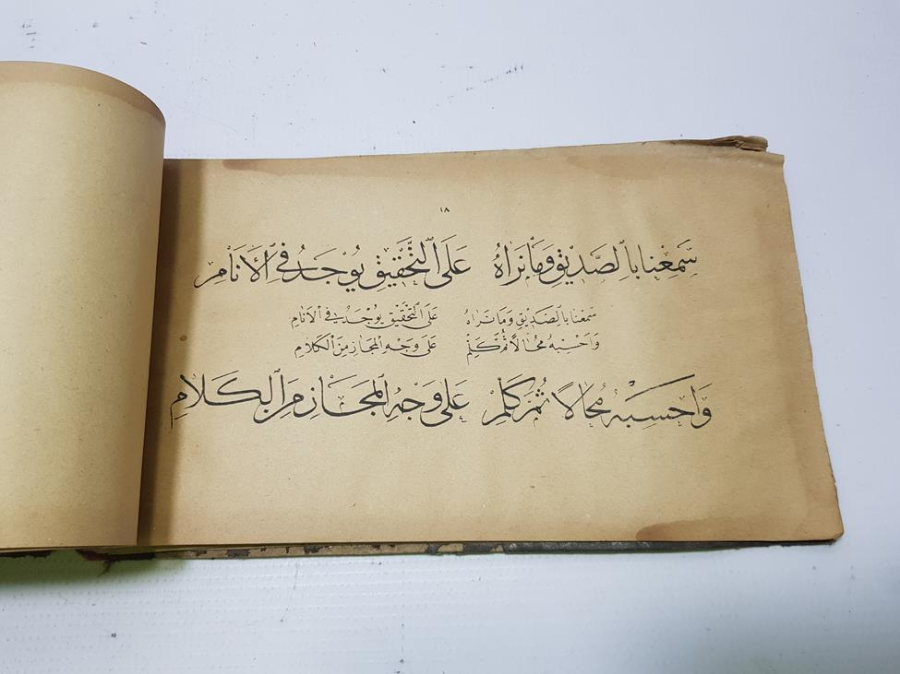 ١٨
سَمِعْنَا بِالصَّدِيْقِ وَمَا نَرَاهُ عَلَى التَّحْقِيْقِ يُوْجَدُ فِي الْأَنَامِ
سَمِعْنَا بِالصَّدِيْقِ وَمَا نَرَاهُ عَلَى التَّحْقِيْقِ يُوْجَدُ فِي الْأَنَامِ
وَاَحْسِبُهُ مُحَالًا ثُمَّ كَلِمْ عَلَى وَجْهِ الْمَجَازِ مِنَ الْكَلَامِ
وَاَحْسِبُهُ مُحَالًا ثُمَّ كَلِمْ عَلَى وَجْهِ الْمَجَازِ مِنَ الْكَلَامِ